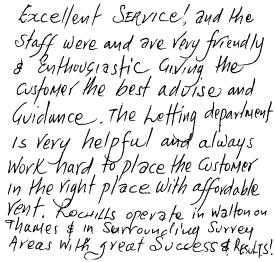 Excellent SERVICE! and the
staff were and are very friendly
& Enthousiastic Giving the
customer the best advise and
Guidance. The Letting department
is very helpful and always
work hard to place the customer
in the right place with affordable
rent. Rochills operate in Walton on
Thames & in Surrounding Surrey
Areas with great Success & RESULTS!